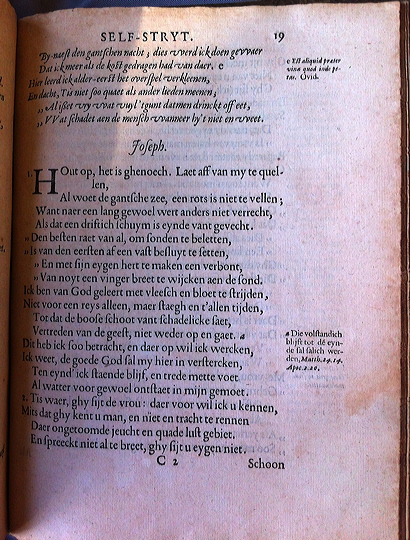 SELF-STRYT. 19
By-naest den gantschen nacht; dies vverd ick doen gevvaer
Dat ick meer als de kost gedragen had van daer. c
Hier leerd ick alder-eerst het overspel verkleenen,
En dacht, Tis niet soo quaet als ander lieden meenen;
„ Al iszet vry vvat vuyl 'tgunt datmen drinckt off eet,
„ VVat schadet aen de mensch vvanneer hy't niet en vveet.
c Est aliquid præter
vina quod inde pe-
tas. Ovid.
Joseph.
1. HOut op, het is ghenoech. Laet aff van my te quel-
len,
Al woet de gantsche zee, een rots is niet te vellen;
Want naer een lang gewoel wert anders niet verrecht,
Als dat een driftich schuym is eynde vant gevecht.
„ Den besten raet van al, om sonden te beletten,
„ Is van den eersten af een vast besluyt te setten,
„ En met sijn eygen hert te maken een verbont,
„ Van noyt een vinger breet te wijcken aen de sond.
Ick ben van God geleert met vleesch en bloet te strijden,
Niet voor een reys alleen, maer staegh en t'allen tijden,
Tot dat de boose schoot vant schadelicke saet,
Vertreden van de geest, niet weder op en gaet. a
Dit heb ick soo betracht, en daer op wil ick wercken,
Ick weet, de goede God sal my hier in verstercken,
Ten eynd' ick staende blijf, en trede met te voet
Al watter voor gewoel ontstaet in mijn gemoet.
a Die volstandich
blijft tot dē eyn-
de sal salich wer-
den, Matth. 24. 14.
Apoc. 2. 10.
2. Tis waer, ghy sijt de vrou: daer voor wil ick u kennen,
Mits dat ghy kent u man, en niet en tracht te rennen
Daer ongetoomde jeucht en quade lust gebiet.
En spreeckt niet al te breet, ghy sijt u eygen niet.
C 2 Schoon